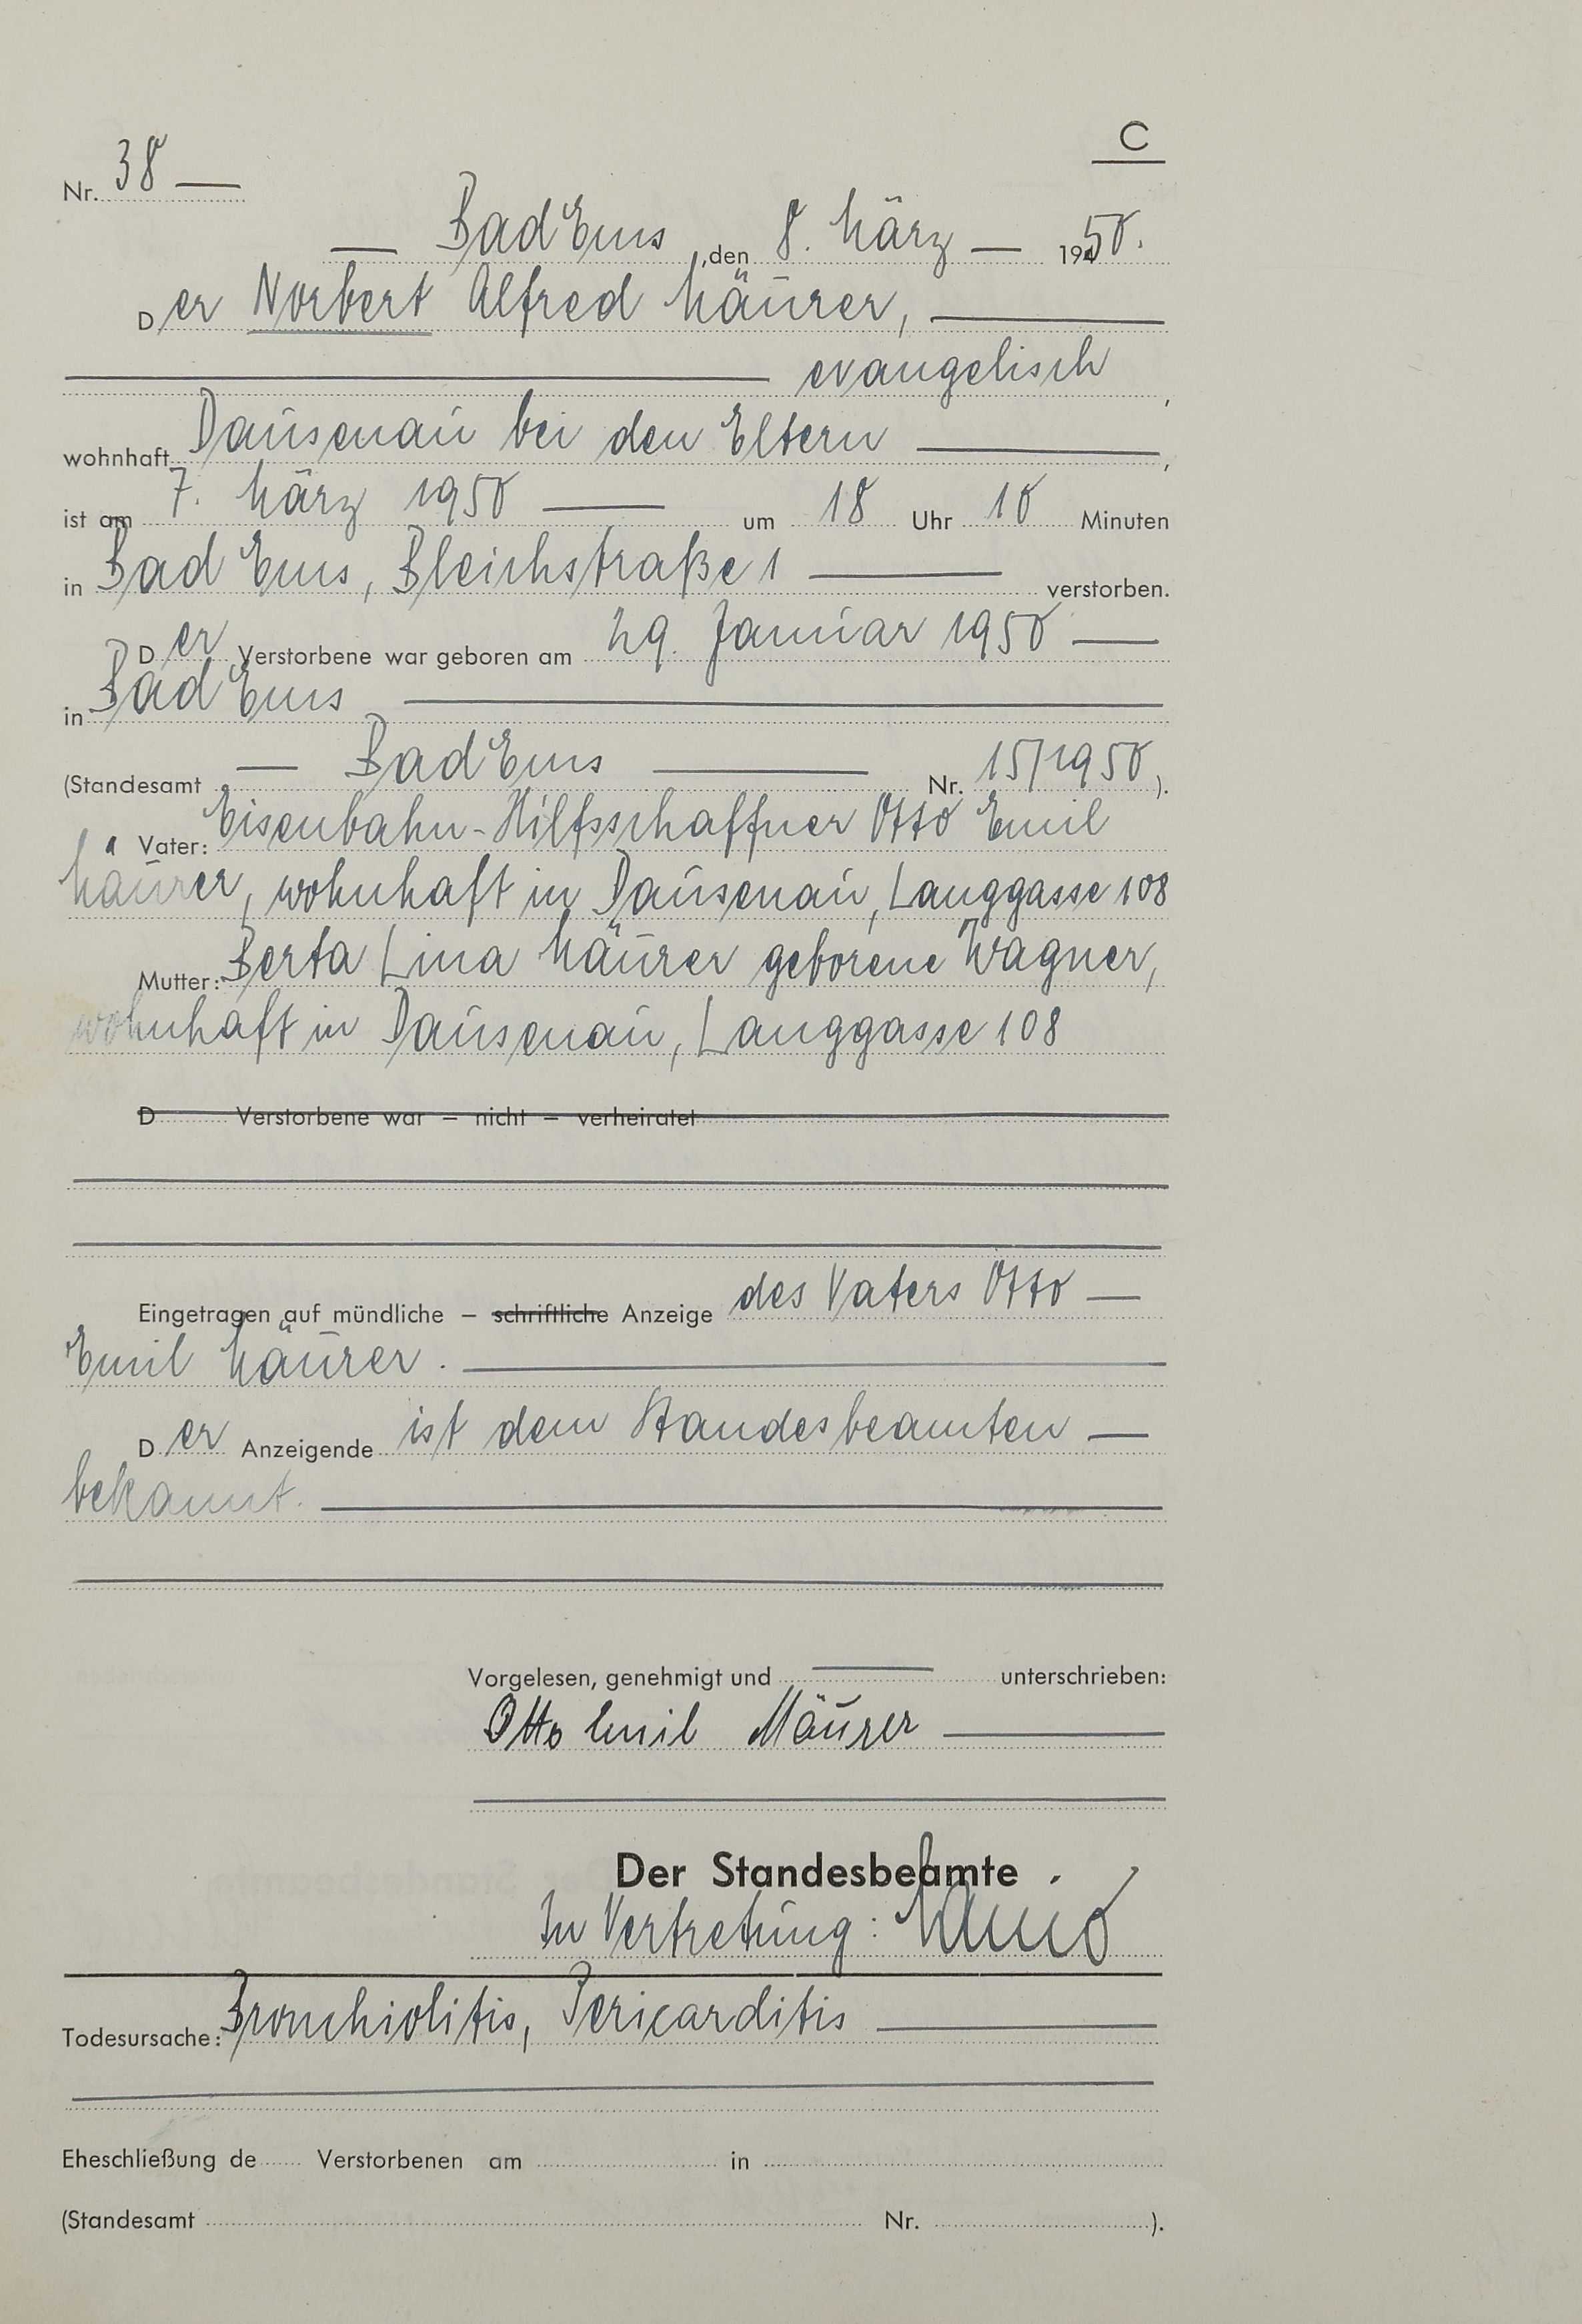 C
Nr. 38 —
— Bad Ems, den 8. März — 1950.
Der Norbert Alfred Mäurer, —
— evangelisch,
wohnhaft Dausenau bei den Eltern —,
ist am 7. März 1950 — um 18 Uhr 10 Minuten
in Bad Ems, Bleichstraße 1 — verstorben.
Der Verstorbene war geboren am 29. Januar 1950 —
in Bad Ems —
(Standesamt — Bad Ems — Nr. 15/1950).
Vater: Eisenbahn-Hilfsschaffner Otto Emil
Mäurer, wohnhaft in Dausenau, Langgasse 108
Mutter: Berta Lina Mäurer geborene Wagner,
wohnhaft in Dausenau, Langgasse 108
D Verstorbene war – nicht – verheiratet
Eingetragen auf mündliche – schriftliche Anzeige des Vaters Otto —
Emil Mäurer. —
Der Anzeigende ist dem Standesbeamten —
bekannt. —
Vorgelesen, genehmigt und — unterschrieben:
Otto Emil Mäurer —
Der Standesbeamte
In Vertretung:
Todesursache: Bronchiolitis, Pericarditis —
Eheschließung de Verstorbenen am in
(Standesamt Nr. ).